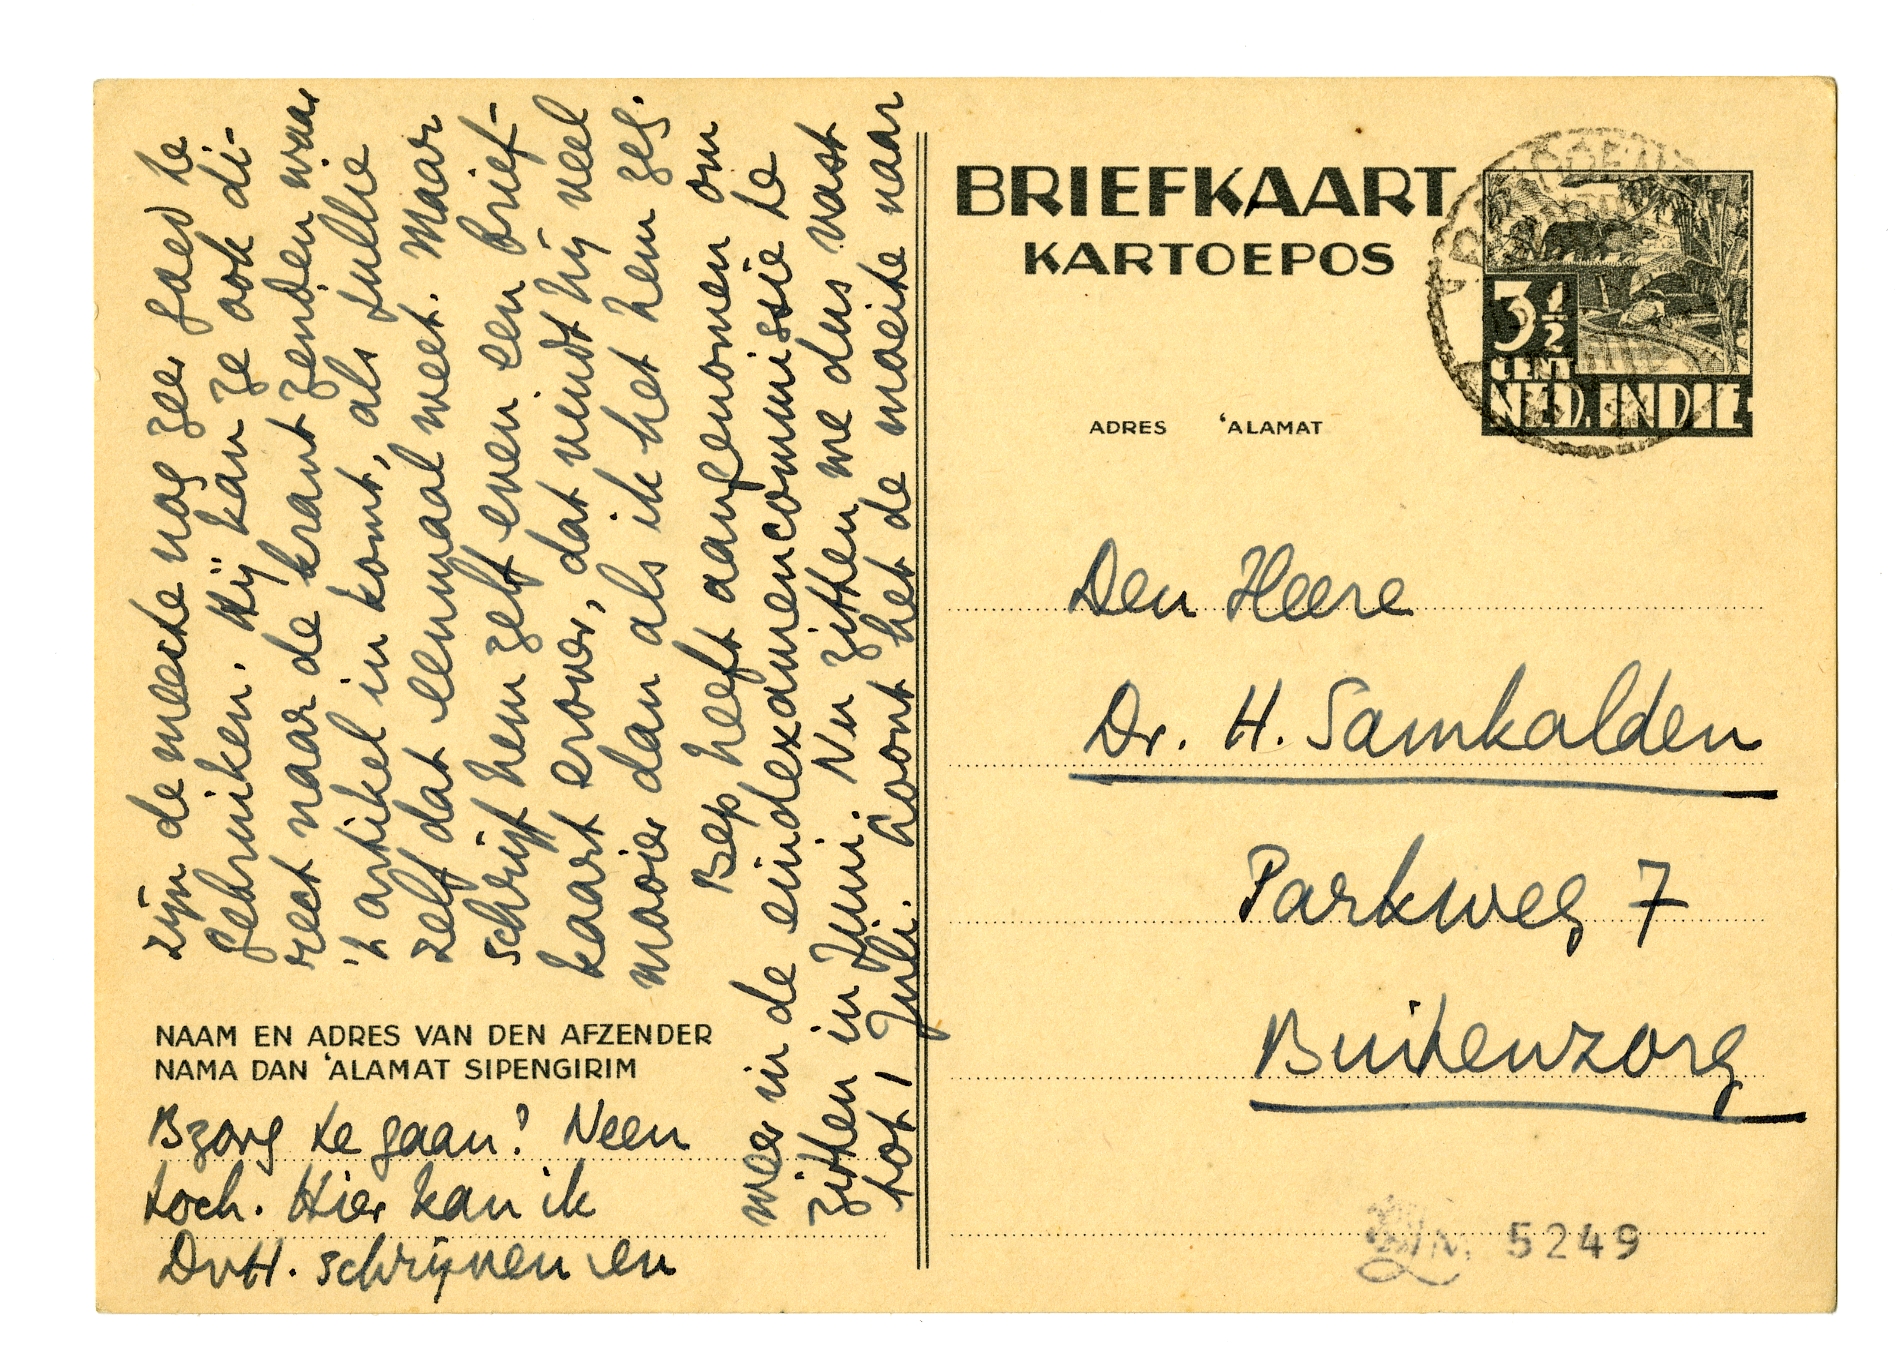 zijn de meeste nog zeer goed te
gebruiken. Hij kan ze ook di-
rect naar de krant zenden waar
't artikel in komt, als jullie
zelf dat eenmaal weet. Maar
schrijf hem zelf even een brief-
kaart erover, dat vindt hij veel
mooier dan als ik het hem zeg.
Bep heeft aangenomen om
weer in de eindexamencommissie te
zitten in Juni. Nu zitten we dus vast
tot 1 Juli. Loont het de moeite naar
NAAM EN ADRES VAN DEN AFZENDER
NAMA DAN ‘ALAMAT SIPENGIRIM
Bzorg te gaan? Neen
toch. Hier kan ik
DvH. schrijven en
BRIEFKAART
KARTOEPOS
3½
CENT
NED. INDIE
ADRES ‘ALAMAT
Den Heere
Dr. H. Samkalden
Parkweg 7
Buitenzorg
5249